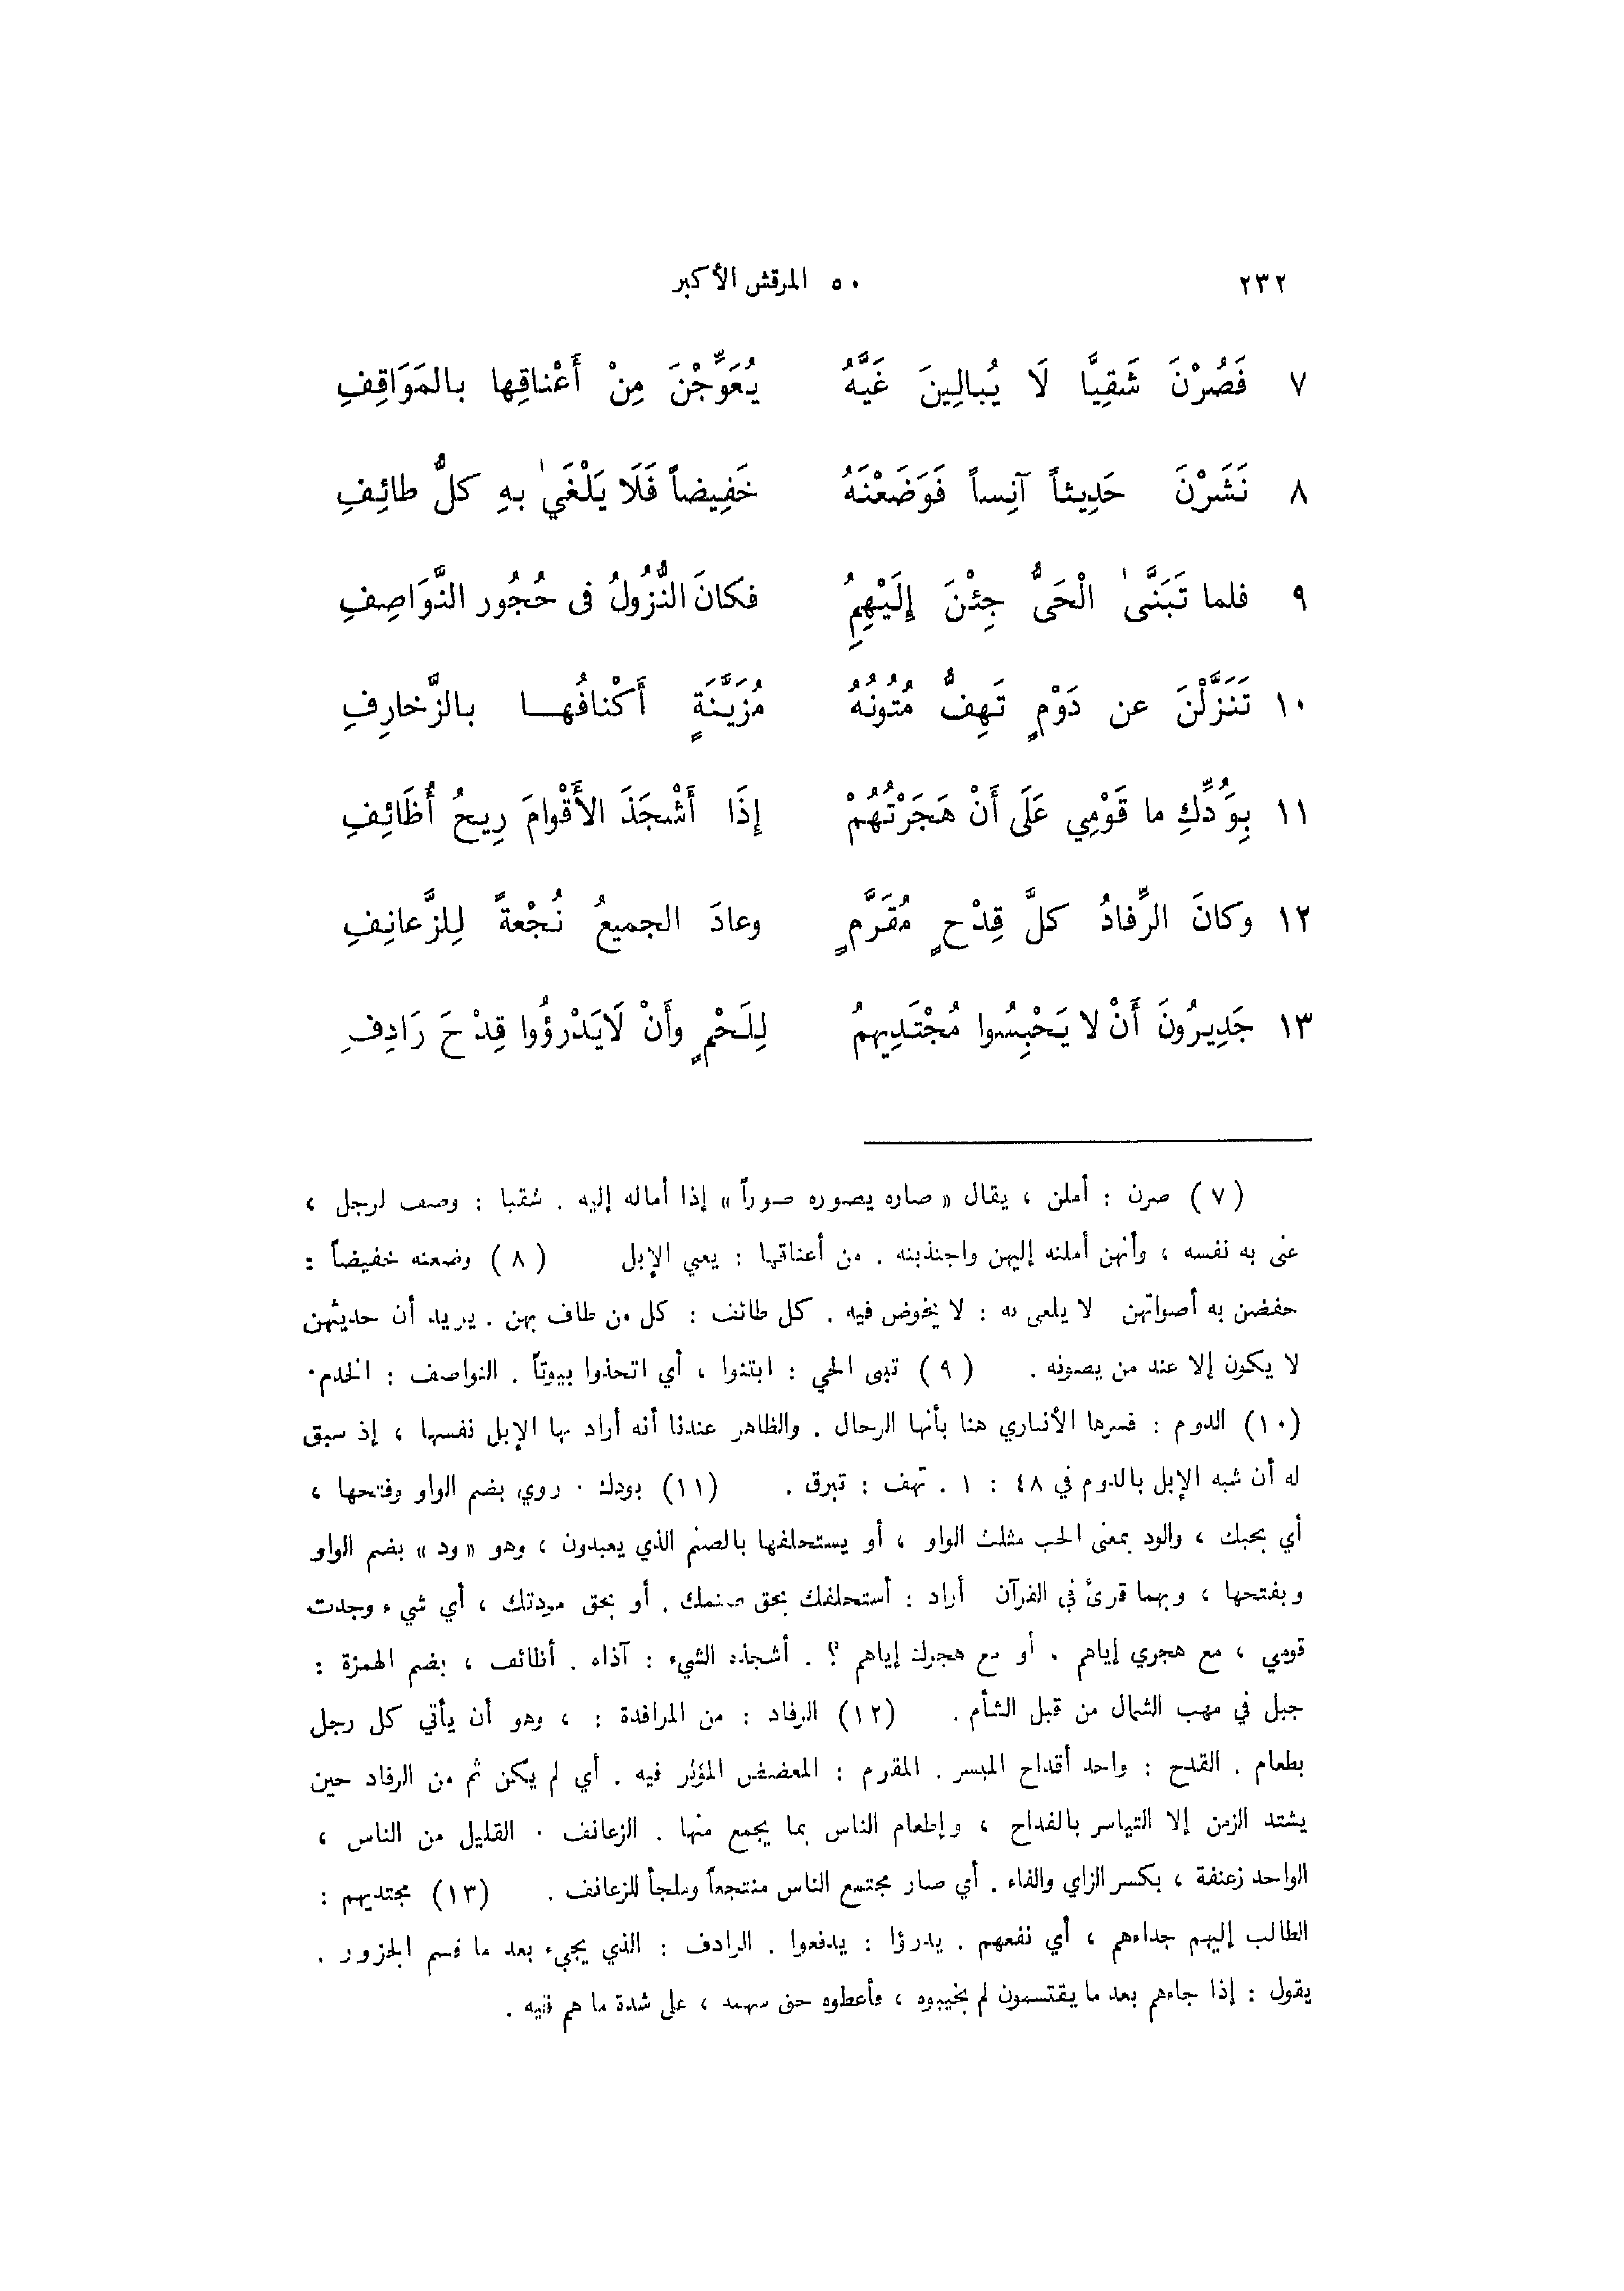 ٢٣٢ ٥٠ المرقش الأكبر
٧ فَصُرْنَ شَقِيًّا لَا يُبالِينَ غَيَّهُ يُعَوِّجْنَ مِنْ أَعْناقِها بالمَوَاقِفِ
٨ نَشَرْنَ حَدِيثاً آنِساً فَوَضَعْنَهُ خَفِيضاً فَلَا يَلْغَىٰ بهِ كلُّ طائِفِ
٩ فلما تَبَنَّىٰ الْحَىُّ جِئْنَ إِلَيْهِمُ فكانَ النُّزُولُ فى حُجُور النَّوَاصِفِ
١٠ تَنَزَّلْنَ عن دَوْمٍ تَهِفُّ مُتُونُهُ مُزَيَّنَةٍ أَكْنافُها بالزَّخارِفِ
١١ بِوَُدِّكِ ما قَوْمِي عَلَى أَنْ هَجَرْتُهُمْ إِذَا أَشْجَذَ الأَقْوامَ رِيحُ أُظَائِفِ
١٢ وكانَ الرِّفادُ كلَّ قِدْحٍ مُقَرَّمٍ وعادَ الجميعُ نُجْعةً لِلزَّعانِفِ
١٣ جَدِيرُونَ أَنْ لا يَحْبِسُوا مُجْتَدِيهمُ لِلَحْمٍ وأَنْ لَا يَدْرؤُوا قِدْحَ رَادِفِ
(٧) صرن : أملن ، يقال « صاره يصوره صوراً » إذا أماله إليه . شقيا : وصف لرجل ،
عنى به نفسه ، وأنهن أملنه إليهن واجتذبنه . من أعناقها : يعني الإبل (٨) وضعنه خفيضاً :
خفضن به أصواتهن لا يلغى به : لا يخوض فيه . كل طائف : كل من طاف بهن . يريد أن حديثهن
لا يكون إلا عند من يصونه . (٩) تبنى الحي : ابتنوا ، أي اتخذوا بيوتاً . النواصف : الخدم .
(١٠) الدوم : فسرها الأنباري هنا بأنها الرحال . والظاهر عندنا أنه أراد بها الإبل نفسها ، إذ سبق
له أن شبه الإبل بالدوم في ٤٨ : ١ . تهف : تبرق . (١١) بودك . روي بضم الواو وفتحها ،
أي بحبك ، والود بمعنى الحب مثلث الواو ، أو يستحلفها بالصنم الذي يعبدون ، وهو « ود » بضم الواو
وبفتحها ، وبهما قرئ في القرآن أراد : أستحلفك بحق صنمك . أو بحق مودتك ، أي شيء وجدت
قومي ، مع هجري إياهم . أو مع هجرك إياهم ؟ . أشجذه الشيء : آذاه . أظائف ، بضم الهمزة :
جبل في مهب الشمال من قبل الشأم . (١٢) الرفاد : من المرافدة : ، وهو أن يأتي كل رجل
بطعام . القدح : واحد أقداح الميسر . المقرم : المعضض المؤثر فيه . أي لم يكن ثم من الرفاد حين
يشتد الزمن إلا التياسر بالقداح ، وإطعام الناس بما يجمع منها . الزعانف . القليل من الناس ،
الواحد زعنفة ، بكسر الزاي والفاء . أي صار مجتمع الناس منتجعاً وملجأ للزعانف . (١٣) مجتديهم :
الطالب إليهم جداءهم ، أي نفعهم . يدرؤا : يدفعوا . الرادف : الذي يجيء بعد ما قسم الجزور .
يقول : إذا جاءهم بعد ما يقتسمون لم يخيبوه ، فأعطوه حق سهمه ، على شدة ما هم فيه .